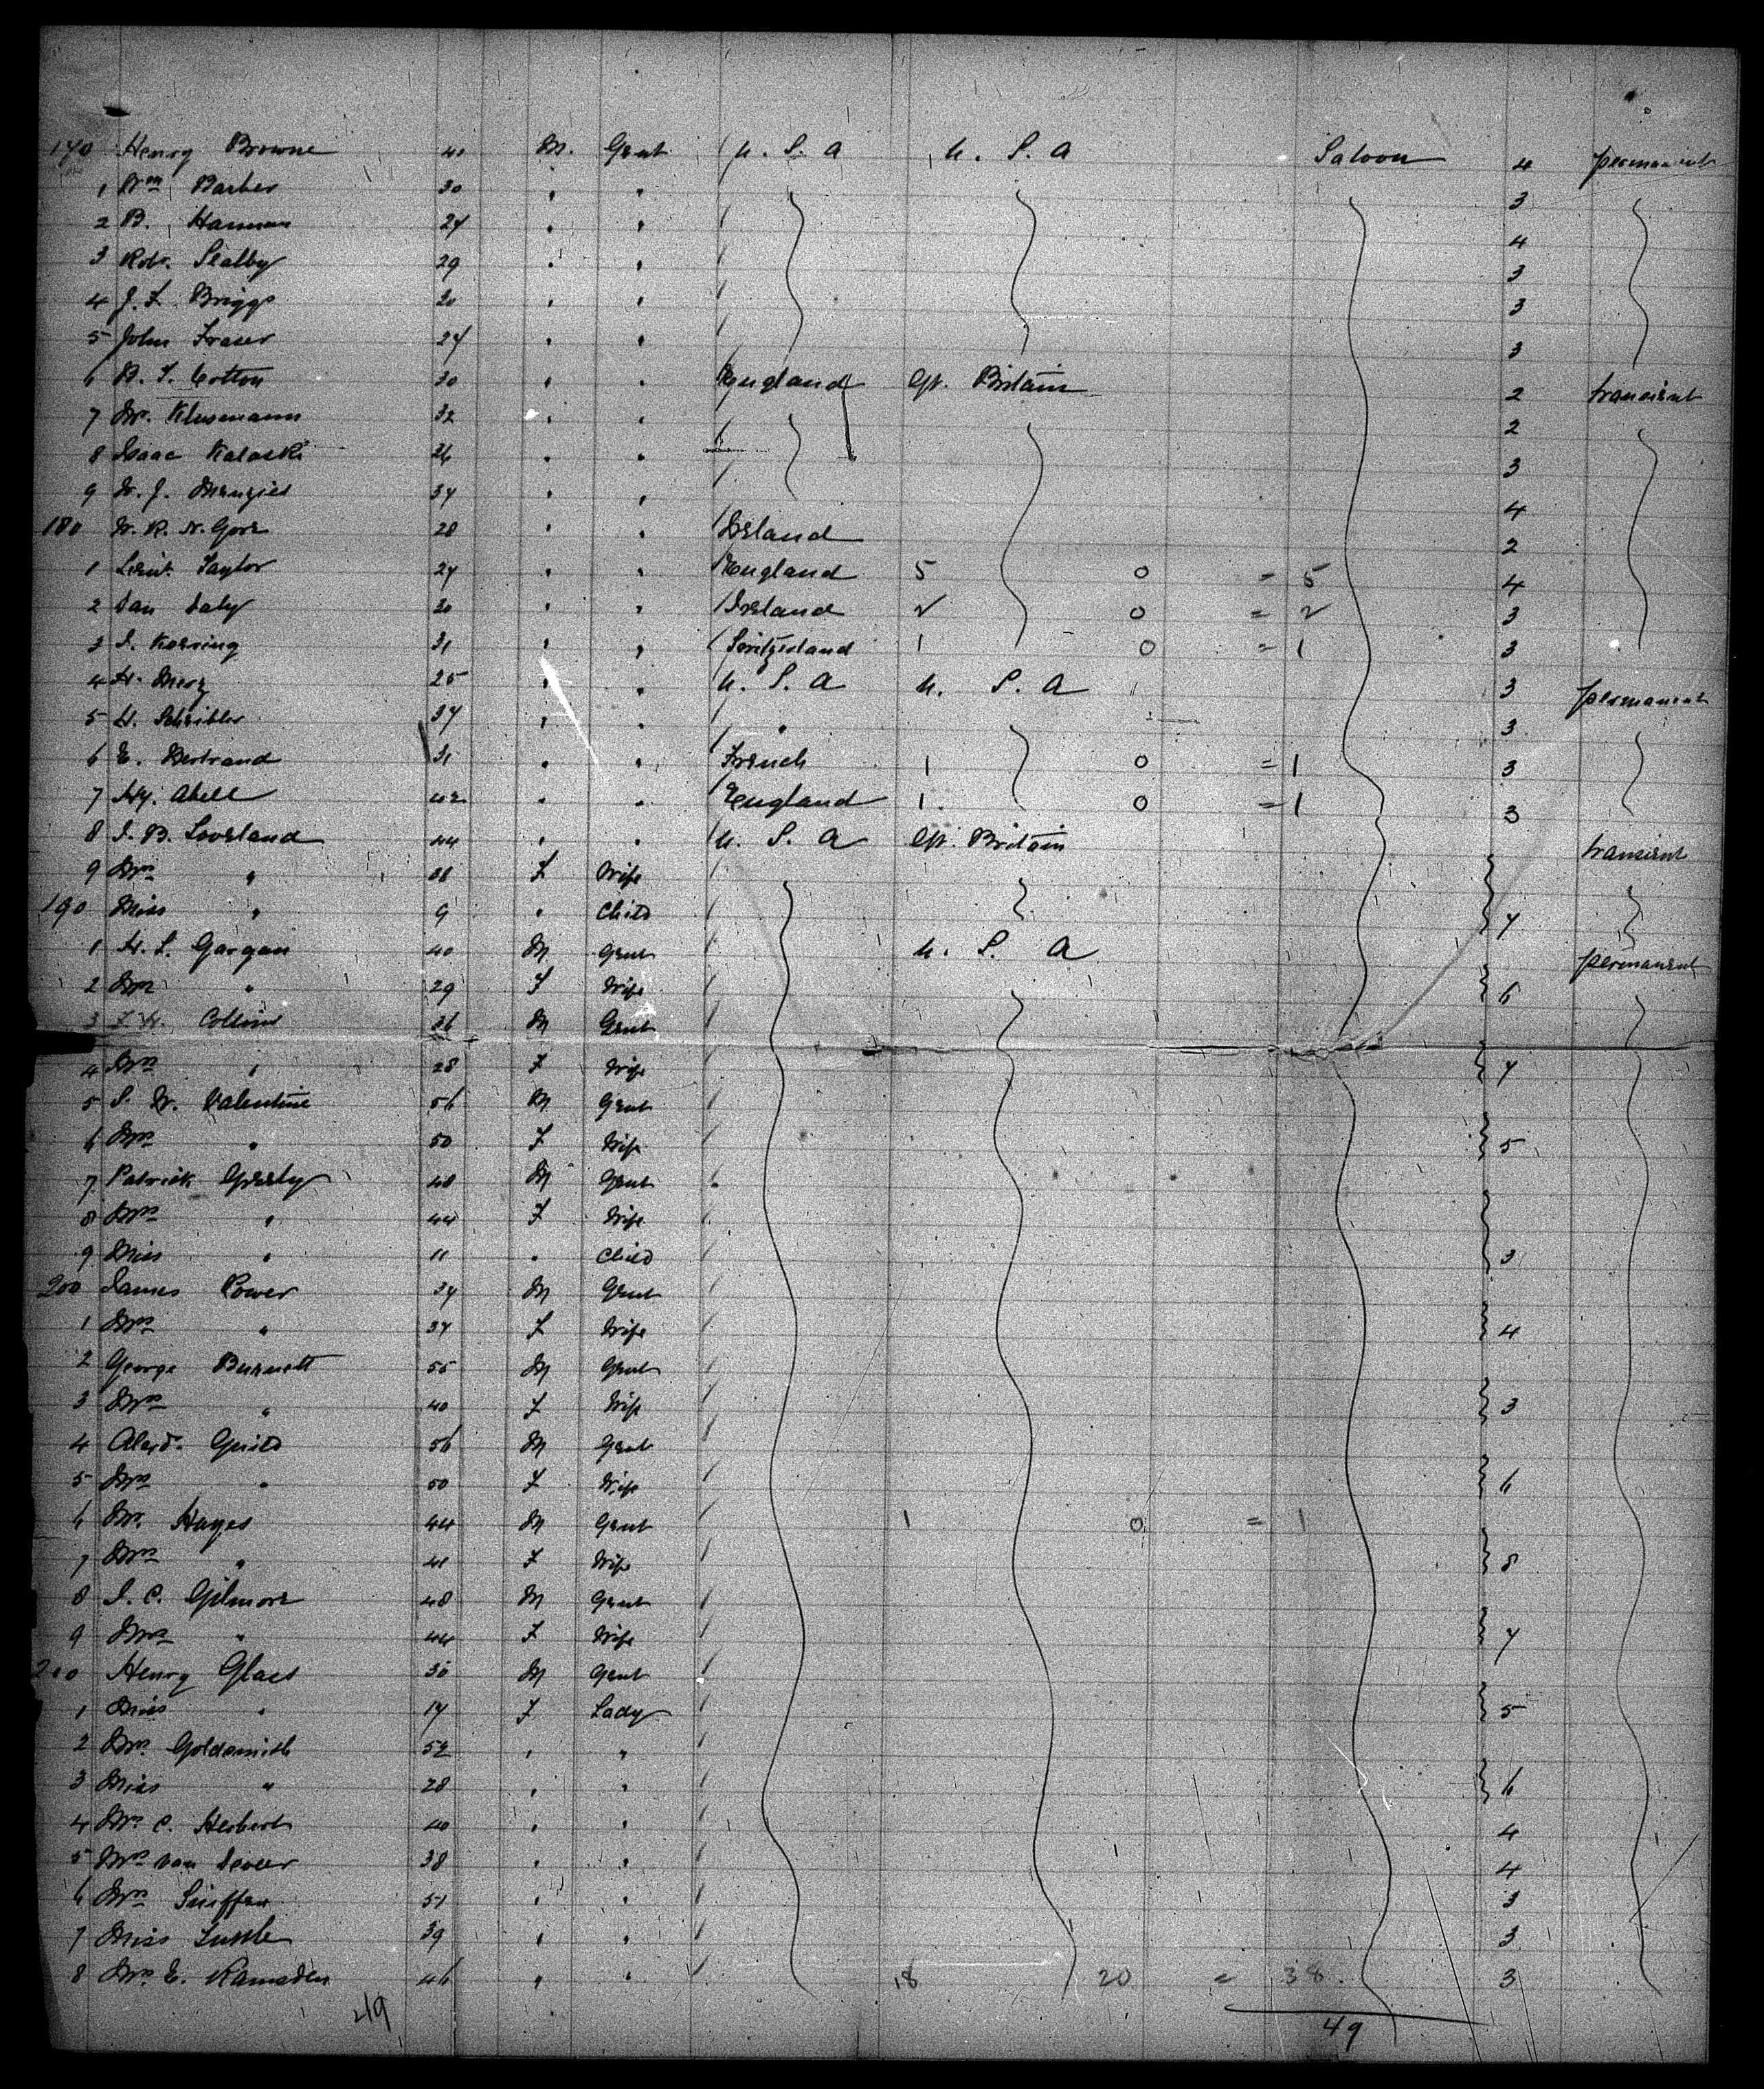 170 Henry Browne 40 M. Gent U. S. A U. S. A Saloon 4 permanent
1 Wm Barber 30 " " 3
2 B. Harman 24 " " 4
3 Robt. 29 " " 3
4 J. F. Briggs 20 " " 3
5 John Fraser 24 " " 3
6 B. T. Cotton 30 " " England Gt. Britain 2 transient
7 32 " " 2
8 Isaac Kalaski 26 " " 3
9 W. J. Menzies 34 " " 4
180 W. R. N. Gore 28 " " Ireland 2
1 Lieut. Taylor 24 " " England 5 0 = 5 4
2 Dan Daly 30 " " Ireland 2 0 = 2 3
3 31 " " Switzerland 1 0 = 1 3
4 H. Merz 25 " " U. S. A U. S. A 3 permanent
5 H. 34 " " " 3
6 E. Bertrand 31 " " French 1 0 = 1 3
7 Hy. Abell 42 " " England 1 0 = 1 3
8 J. B. Loveland 44 " " U. S. A Gt. Britain transient
9 Mrs " 38 F Wife
190 Miss " 9 " Child 7
1 H. S. Gargan 40 M Gent U. S. A permanent
2 Mrs " 29 F Wife 6
3 F. H. Collins 36 M Gent
4 Mrs " 28 F Wife 7
5 S. W. Valentine 56 M Gent
6 Mrs " 50 F Wife 5
7 Patrick 48 M Gent
8 Mrs " 44 F Wife
9 Miss " 11 " Child 3
200 James Power 34 M Gent
1 Mrs " 34 F Wife 4
2 George Burnett 55 M Gent
3 Mrs " 40 F Wife 3
4 Alexd. Guild 56 M Gent
5 Mrs " 50 F Wife 6
6 Mr. Hayes 44 M Gent 1 0 = 1
7 Mrs " 41 F Wife 8
8 J. C. Gilmore 48 M Gent
9 Mrs " 44 F Wife 7
210 Henry Glaes 50 M Gent
1 Miss " 17 F Lady 5
2 Mrs. Goldsmith 52 " "
3 Miss " 28 " " 6
4 Mrs C. Herbert 40 " " 4
5 Mrs van 38 " " 4
6 Mrs Sniffen 51 " " 3
7 Miss Tuttle 39 " " 3
8 Mrs E. Ramsden 46 " " 18 20 = 38. 3
49 49